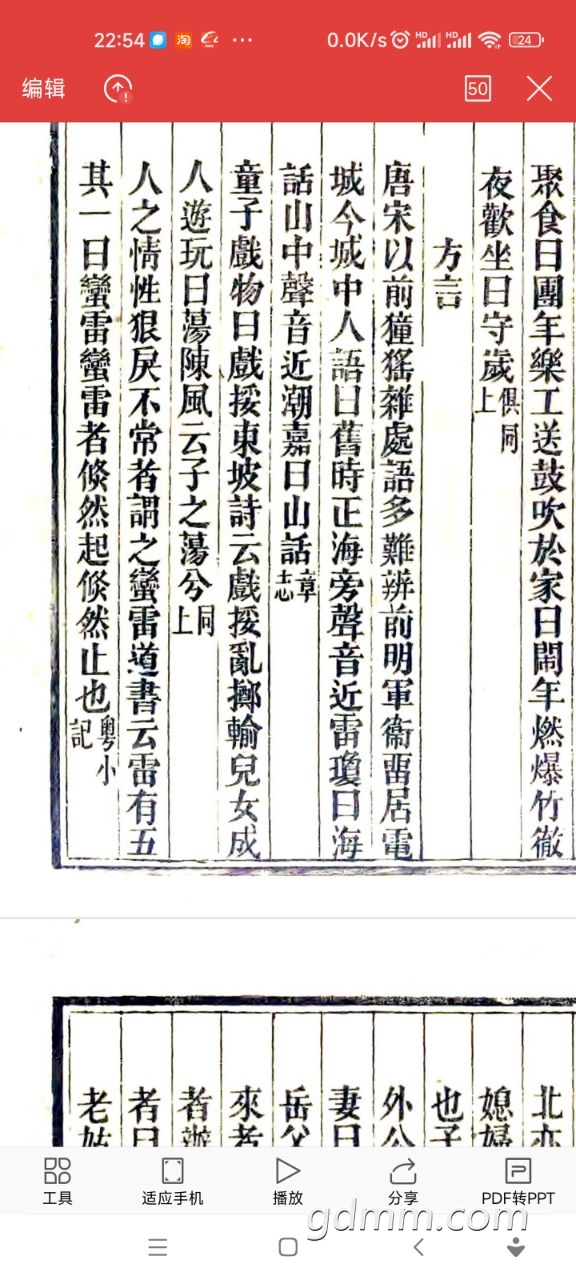 22:54 淘 ... 0.0K/s HD HD 24
编辑 50
聚食曰團年樂工送鼓吹於家曰鬧年燃爆竹徹
夜歡坐曰守歲俱同上
方言
唐宋以前獞猺雜處語多難辨前明軍衞畱居電
城今城中人語曰舊時正海旁聲音近雷瓊曰海
話山中聲音近潮嘉曰山話章志
童子戲物曰戲挼東坡詩云戲挼亂擲輸兒女成
人遊玩曰蕩陳風云子之蕩兮同上
人之情性狠戾不常者謂之蠻雷道書云雷有五
其一曰蠻雷蠻雷者倐然起倐然止也粵小記
北亦
媳婦
也子
外公
妻曰
岳父
來者
者遊
者曰
老姑
工具
适应手机
播放
分享
PDF转PPT
gdmm.com